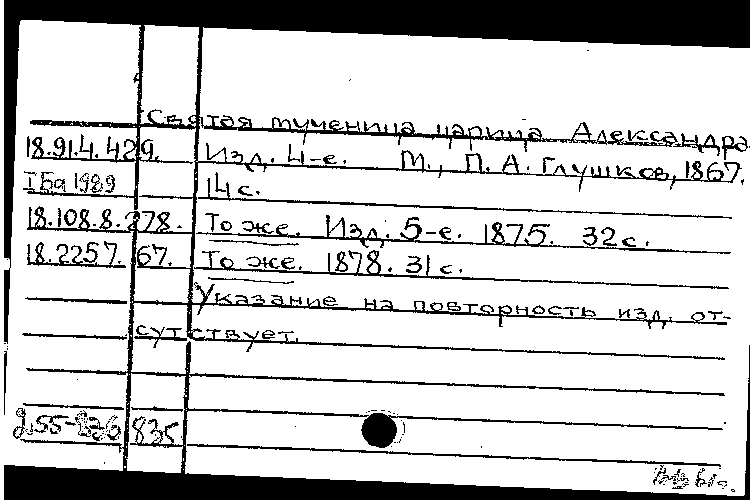 Святая мученица царица Александра.
18.91.4.429. Изд. 4-е. М., П. А. Глушков, 1867.
I Ба 1989 14 с.
18.108.8.278. То же. Изд. 5-е. 1875. 32 с.
18.225 7. 67. То же. 1878. 31 с.
Указание на повторность изд. от-
сутствует.
2.55-836 835